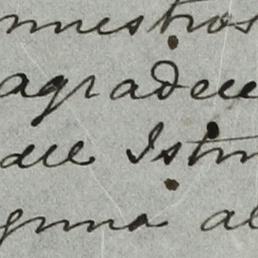 nuestros
agradece
del Istm
guna al